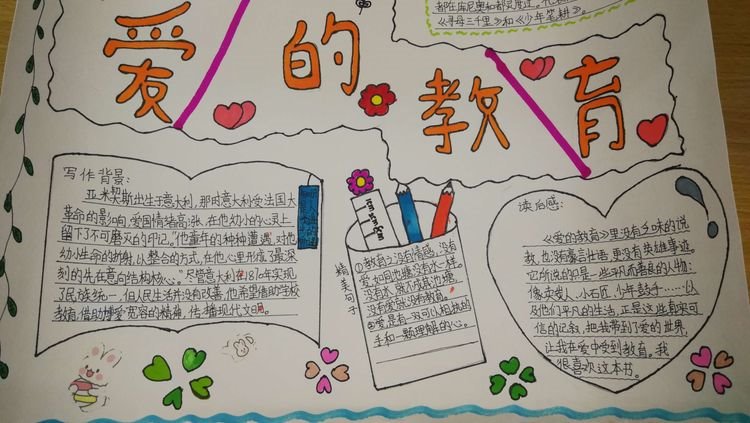 都在库尼奥和都灵度过。
《寻母三千里》和《少年笔耕》。
爱的教育
写作背景：
亚米契斯出生于意大利，那时意大利受法国大
革命的影响，爱国情绪高涨，在他幼小的心灵上
留下了不可磨灭的印记。"他童年的种种遭遇，对他
幼小生命的折射，以整合的方式，在他心里形成了最深
刻的先在意向结构核心。"尽管意大利在1870年实现
了民族统一，但人民生活并没有改善，他希望借助学校
教育，借助博爱宽容的精神，传播现代文明。
精美句子
①教育之没有情感，没有
爱，如同池塘没有水一样。
没有水，就不成其池塘，
没有爱就没有教育。
②爱，是有一双可以相扶的
手和一颗理解的心。
读后感：
《爱的教育》里没有乏味的说
教，也没有豪言壮语，更没有英雄事迹。
它所说的只是一些平凡而善良的人物：
像卖炭人，小石匠，少年鼓手……以
及他们平凡的生活，正是这些看来可
信的记叙，把我带到了爱的世界，
让我在爱中受到教育。我
很喜欢这本书。